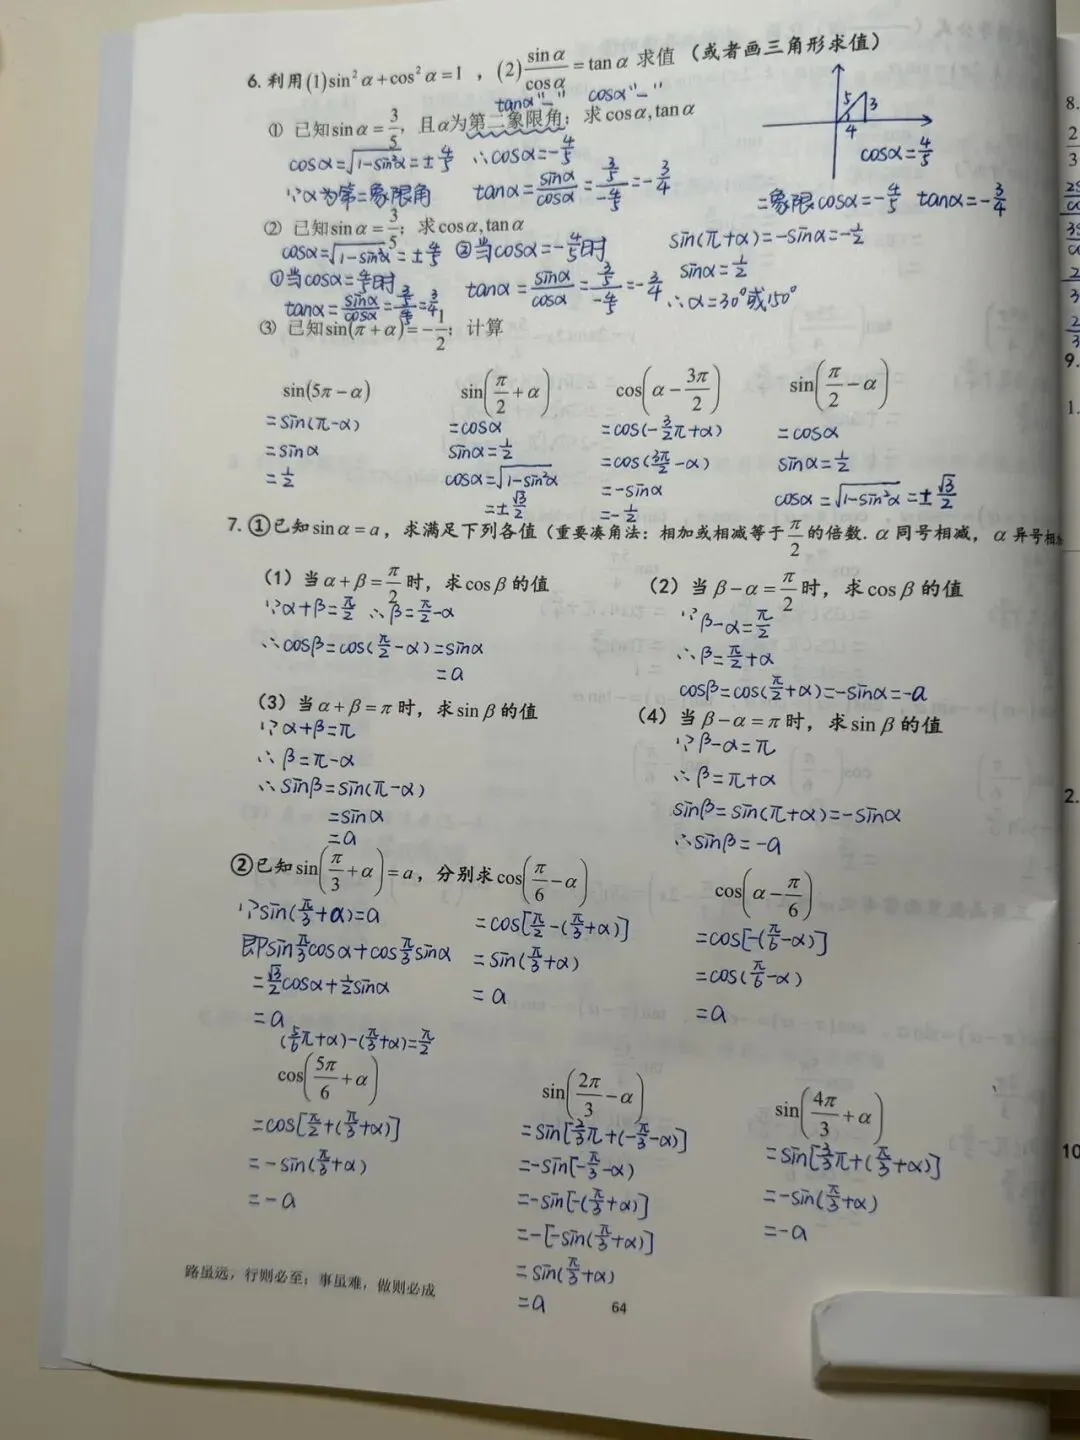 6. 利用(1)sin²α+cos²α=1，(2)sinα/cosα=tanα 求值（或者画三角形求值）
tanα"-" cosα"-"
① 已知sinα=3/5，且α为第二象限角；求cosα,tanα
cosα=√(1-sin²α)=±4/5 ∴cosα=-4/5
∵α为第二象限角 tanα=sinα/cosα=(3/5)/(-4/5)=-3/4
5 3
4
cosα=4/5
二象限cosα=-4/5 tanα=-3/4
② 已知sinα=3/5；求cosα,tanα
cosα=√(1-sin²α)=±4/5 ②当cosα=-4/5时
①当cosα=4/5时 tanα=sinα/cosα=(3/5)/(-4/5)=-3/4
tanα=sinα/cosα=(3/5)/(4/5)=3/4
sin(π+α)=-sinα=-1/2
sinα=1/2
∴α=30°或150°
③ 已知sin(π+α)=-1/2；计算
sin(5π-α)
=sin(π-α)
=sinα
=1/2
sin(π/2+α)
=cosα
sinα=1/2
cosα=√(1-sin²α)
=±√3/2
cos(α-3π/2)
=cos(-3/2π+α)
=cos(3π/2-α)
=-sinα
=-1/2
sin(π/2-α)
=cosα
sinα=1/2
cosα=√(1-sin²α)=±√3/2
7. ①已知sinα=a，求满足下列各值（重要凑角法：相加或相减等于π/2的倍数.α同号相减，α异号相加
(1) 当α+β=π/2时，求cosβ的值
∵α+β=π/2 ∴β=π/2-α
∴cosβ=cos(π/2-α)=sinα
=a
(2) 当β-α=π/2时，求cosβ的值
∵β-α=π/2
∴β=π/2+α
cosβ=cos(π/2+α)=-sinα=-a
(3) 当α+β=π时，求sinβ的值
∵α+β=π
∴β=π-α
∴sinβ=sin(π-α)
=sinα
=a
(4) 当β-α=π时，求sinβ的值
∵β-α=π
∴β=π+α
sinβ=sin(π+α)=-sinα
∴sinβ=-a
②已知sin(π/3+α)=a，分别求cos(π/6-α)
∵sin(π/3+α)=a
即sinπ/3cosα+cosπ/3sinα
=√3/2cosα+1/2sinα
=a
=cos[π/2-(π/3+α)]
=sin(π/3+α)
=a
cos(α-π/6)
=cos[-(π/6-α)]
=cos(π/6-α)
=a
(5/6π+α)-(π/3+α)=π/2
cos(5π/6+α)
=cos[π/2+(π/3+α)]
=-sin(π/3+α)
=-a
sin(2π/3-α)
=sin[3/3π+(-π/3-α)]
=-sin[-π/3-α)
=-sin[-(π/3+α)]
=-[-sin(π/3+α)]
=sin(π/3+α)
=a
sin(4π/3+α)
=sin[3/3π+(π/3+α)]
=-sin(π/3+α)
=-a
路虽远，行则必至；事虽难，做则必成
64
8.
9.
1.
2.
10